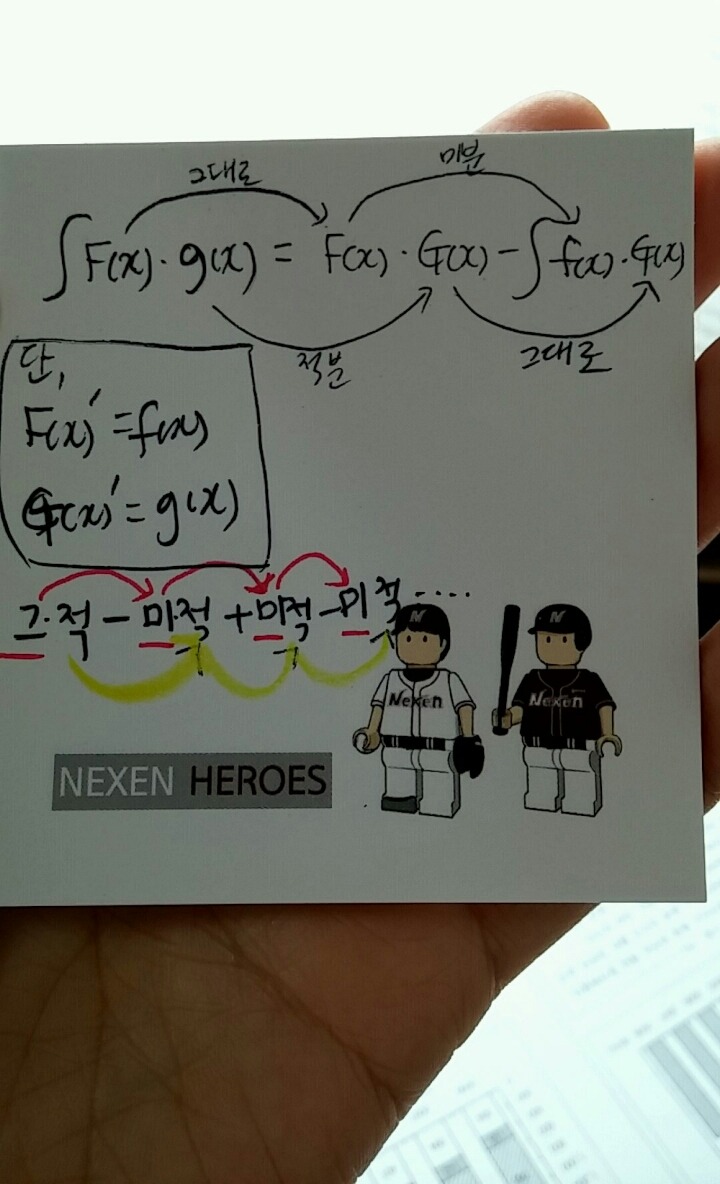 그대로 미분
∫F(x)·g(x) = F(x)·G(x) - ∫f(x)·G(x)
적분 그대로
단,
F(x)′=f(x)
G(x)′=g(x)
그·적 - 미·적 + 미적 - 미적 ····
N N
Nexen Nexen
NEXEN HEROES